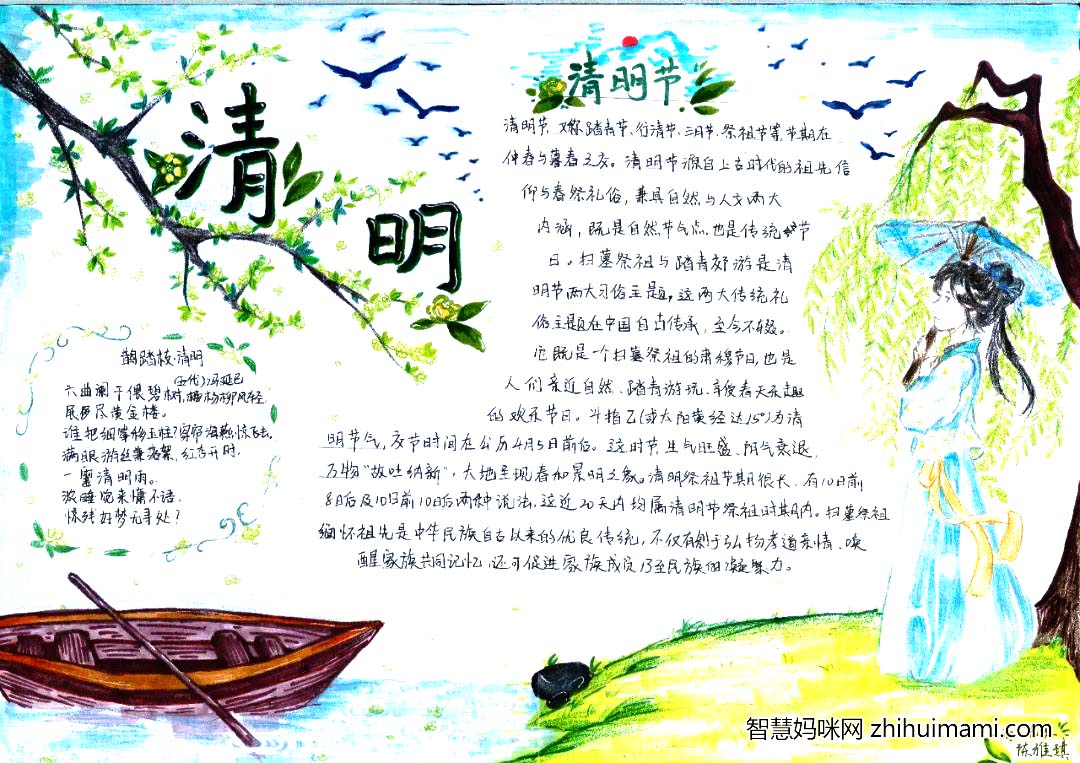 清
明
鹊踏枝·清明
(五代)冯延巳
六曲阑干偎碧树,杨柳风轻,
展尽黄金楼。
谁把钿筝移玉柱?穿帘海燕惊飞去。
满眼游丝兼落絮,红杏开时,
一霎清明雨。
浓睡觉来慵不语,
惊残好梦无寻处?
清明节
清明节,又称踏青节、行清节、三月节、祭祖节等,节期在
仲春与暮春之交。清明节源自上古时代的祖先信
仰与春祭礼俗,兼具自然与人文两大
内涵,既是自然节气点,也是传统节
日。扫墓祭祖与踏青郊游是清
明节两大习俗主题,这两大传统礼
俗主题在中国自古传承,至今不辍。
它既是一个扫墓祭祖的肃穆节日,也是
人们亲近自然、踏青游玩、享受春天乐趣
的欢乐节日。斗指乙(或太阳黄经达15°)为清
明节气,交节时间在公历4月5日前后。这时节生气旺盛、阴气衰退,
万物“故吐纳新”,大地呈现春和景明之象。清明祭祖节期很长,有10日前
8日后及10日前10日后两种说法,这近20天内均属清明节祭祖时期内。扫墓祭祖
缅怀祖先是中华民族自古以来的优良传统,不仅有利于弘扬孝道亲情、唤
醒家族共同记忆,还可促进家族成员乃至民族的凝聚力。
智慧妈咪网 zhihuimami.com